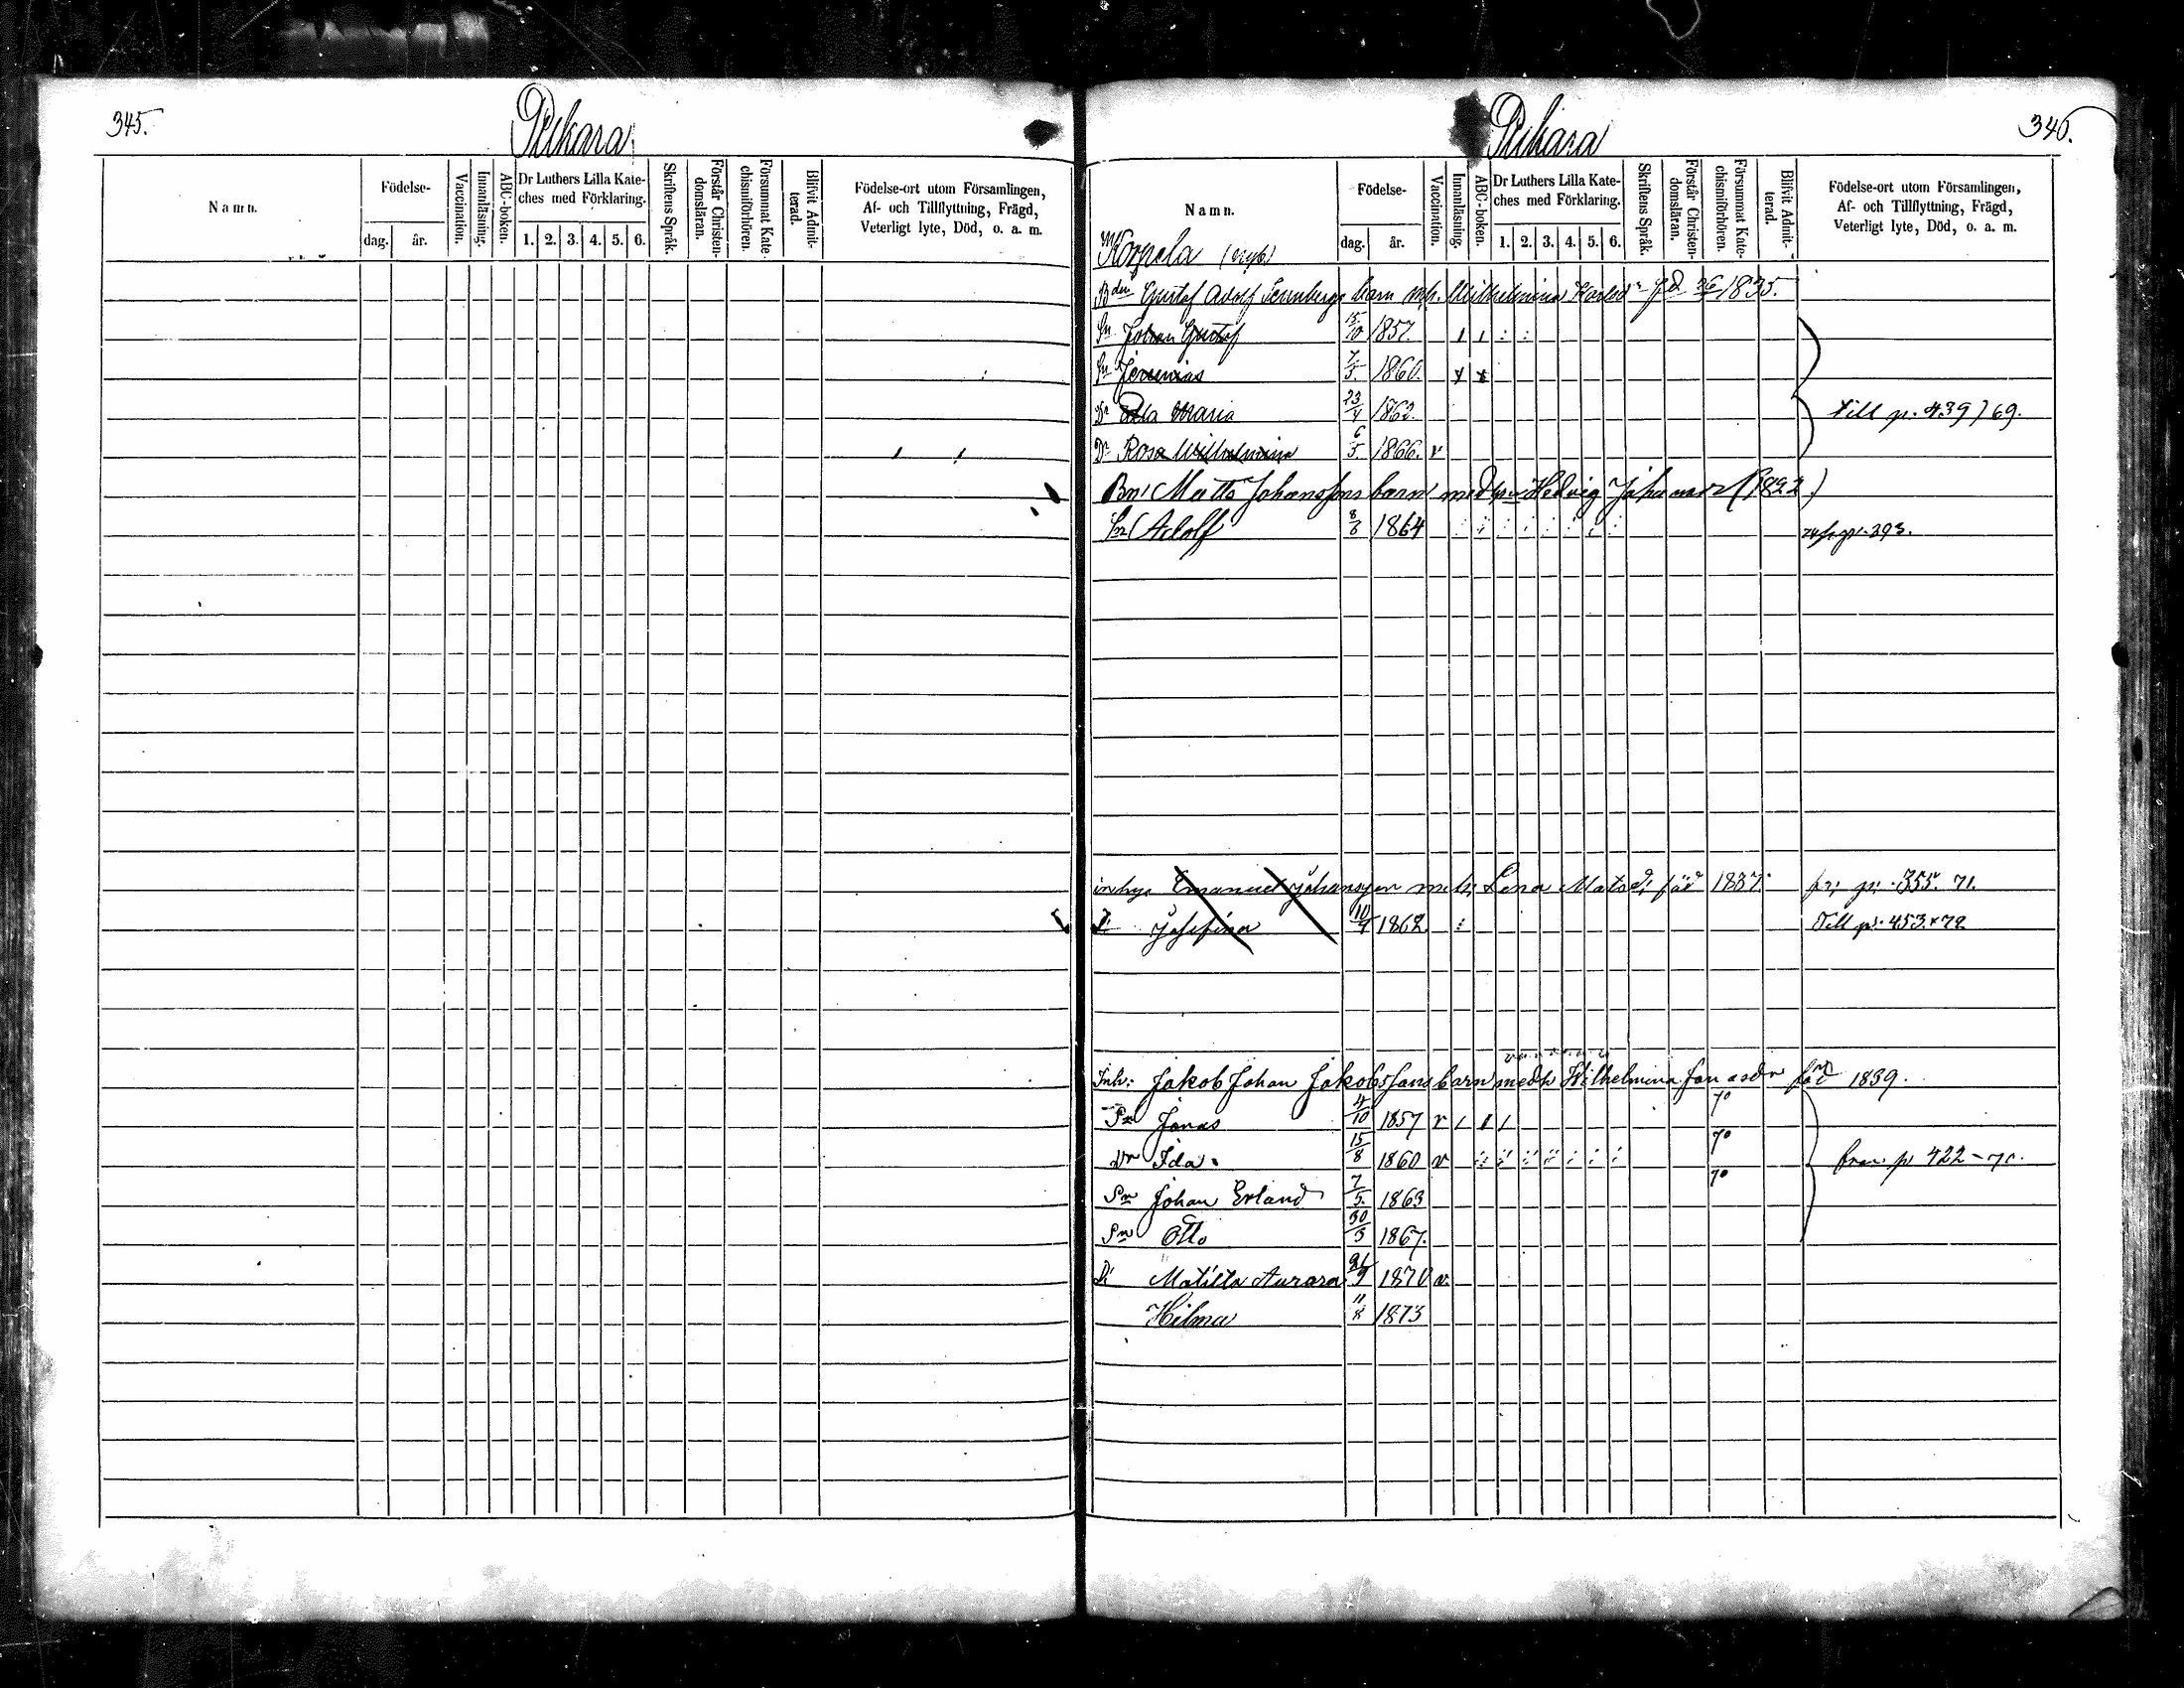 345.
Pukara
Namn.
Födelse-
dag. år.
Vaccination.
Innanläsning.
ABC-boken.
Dr Luthers Lilla Kate-
ches med Förklaring.
1. 2. 3. 4. 5. 6.
Skriftens Språk.
Förstår Christen-
domsläran.
Försummat Kate-
chismiförhören.
Blifvit Admit-
terad.
Födelse-ort utom Församlingen,
Af- och Tillflyttning, Frägd,
Veterligt lyte, Död, o. a. m.
346.
Pukara
Namn.
Födelse-
dag. år.
Vaccination.
Innanläsning.
ABC-boken.
Dr Luthers Lilla Kate-
ches med Förklaring.
1. 2. 3. 4. 5. 6.
Skriftens Språk.
Förstår Christen-
domsläran.
Försummat Kate-
chismiförhören.
Blifvit Admit-
terad.
Födelse-ort utom Församlingen,
Af- och Tillflyttning, Frägd,
Veterligt lyte, Död, o. a. m.
Korpela (nyb)
Gustaf Adolf barn m h. Wilhelmina 1835.
Sn Johan Gustaf 15/10 1857.
Sn Jeremias 7/3. 1860.
Dr Maria 23/4 1862. Till p. 439/69.
Dr Rosa Wilhelmina 6/5. 1866. v
Bn Matts Johanssons barn med Hedvig (1822)
Sn Adolf 8/6 1864 p. 393.
inhys Emanuel Johansson m h. Lena Matsd: föd 1837. fr: p: 355. 71.
D: Josefina 10/4 1862. Till p. 453. 72
Inh: Jakob Johan Jakobssons barn med h Wilhelmina Jonasdr född 1839.
Sn Jonas 4/10 1857 v 70
dr Ida 15/8 1860 v 70 från p 422-70.
Sn Johan Erland 7/5. 1863 70
Sn Otto 30/3 1867.
D: Matilta Aurora 21/9 1870 v.
Hilma 11/8 1873